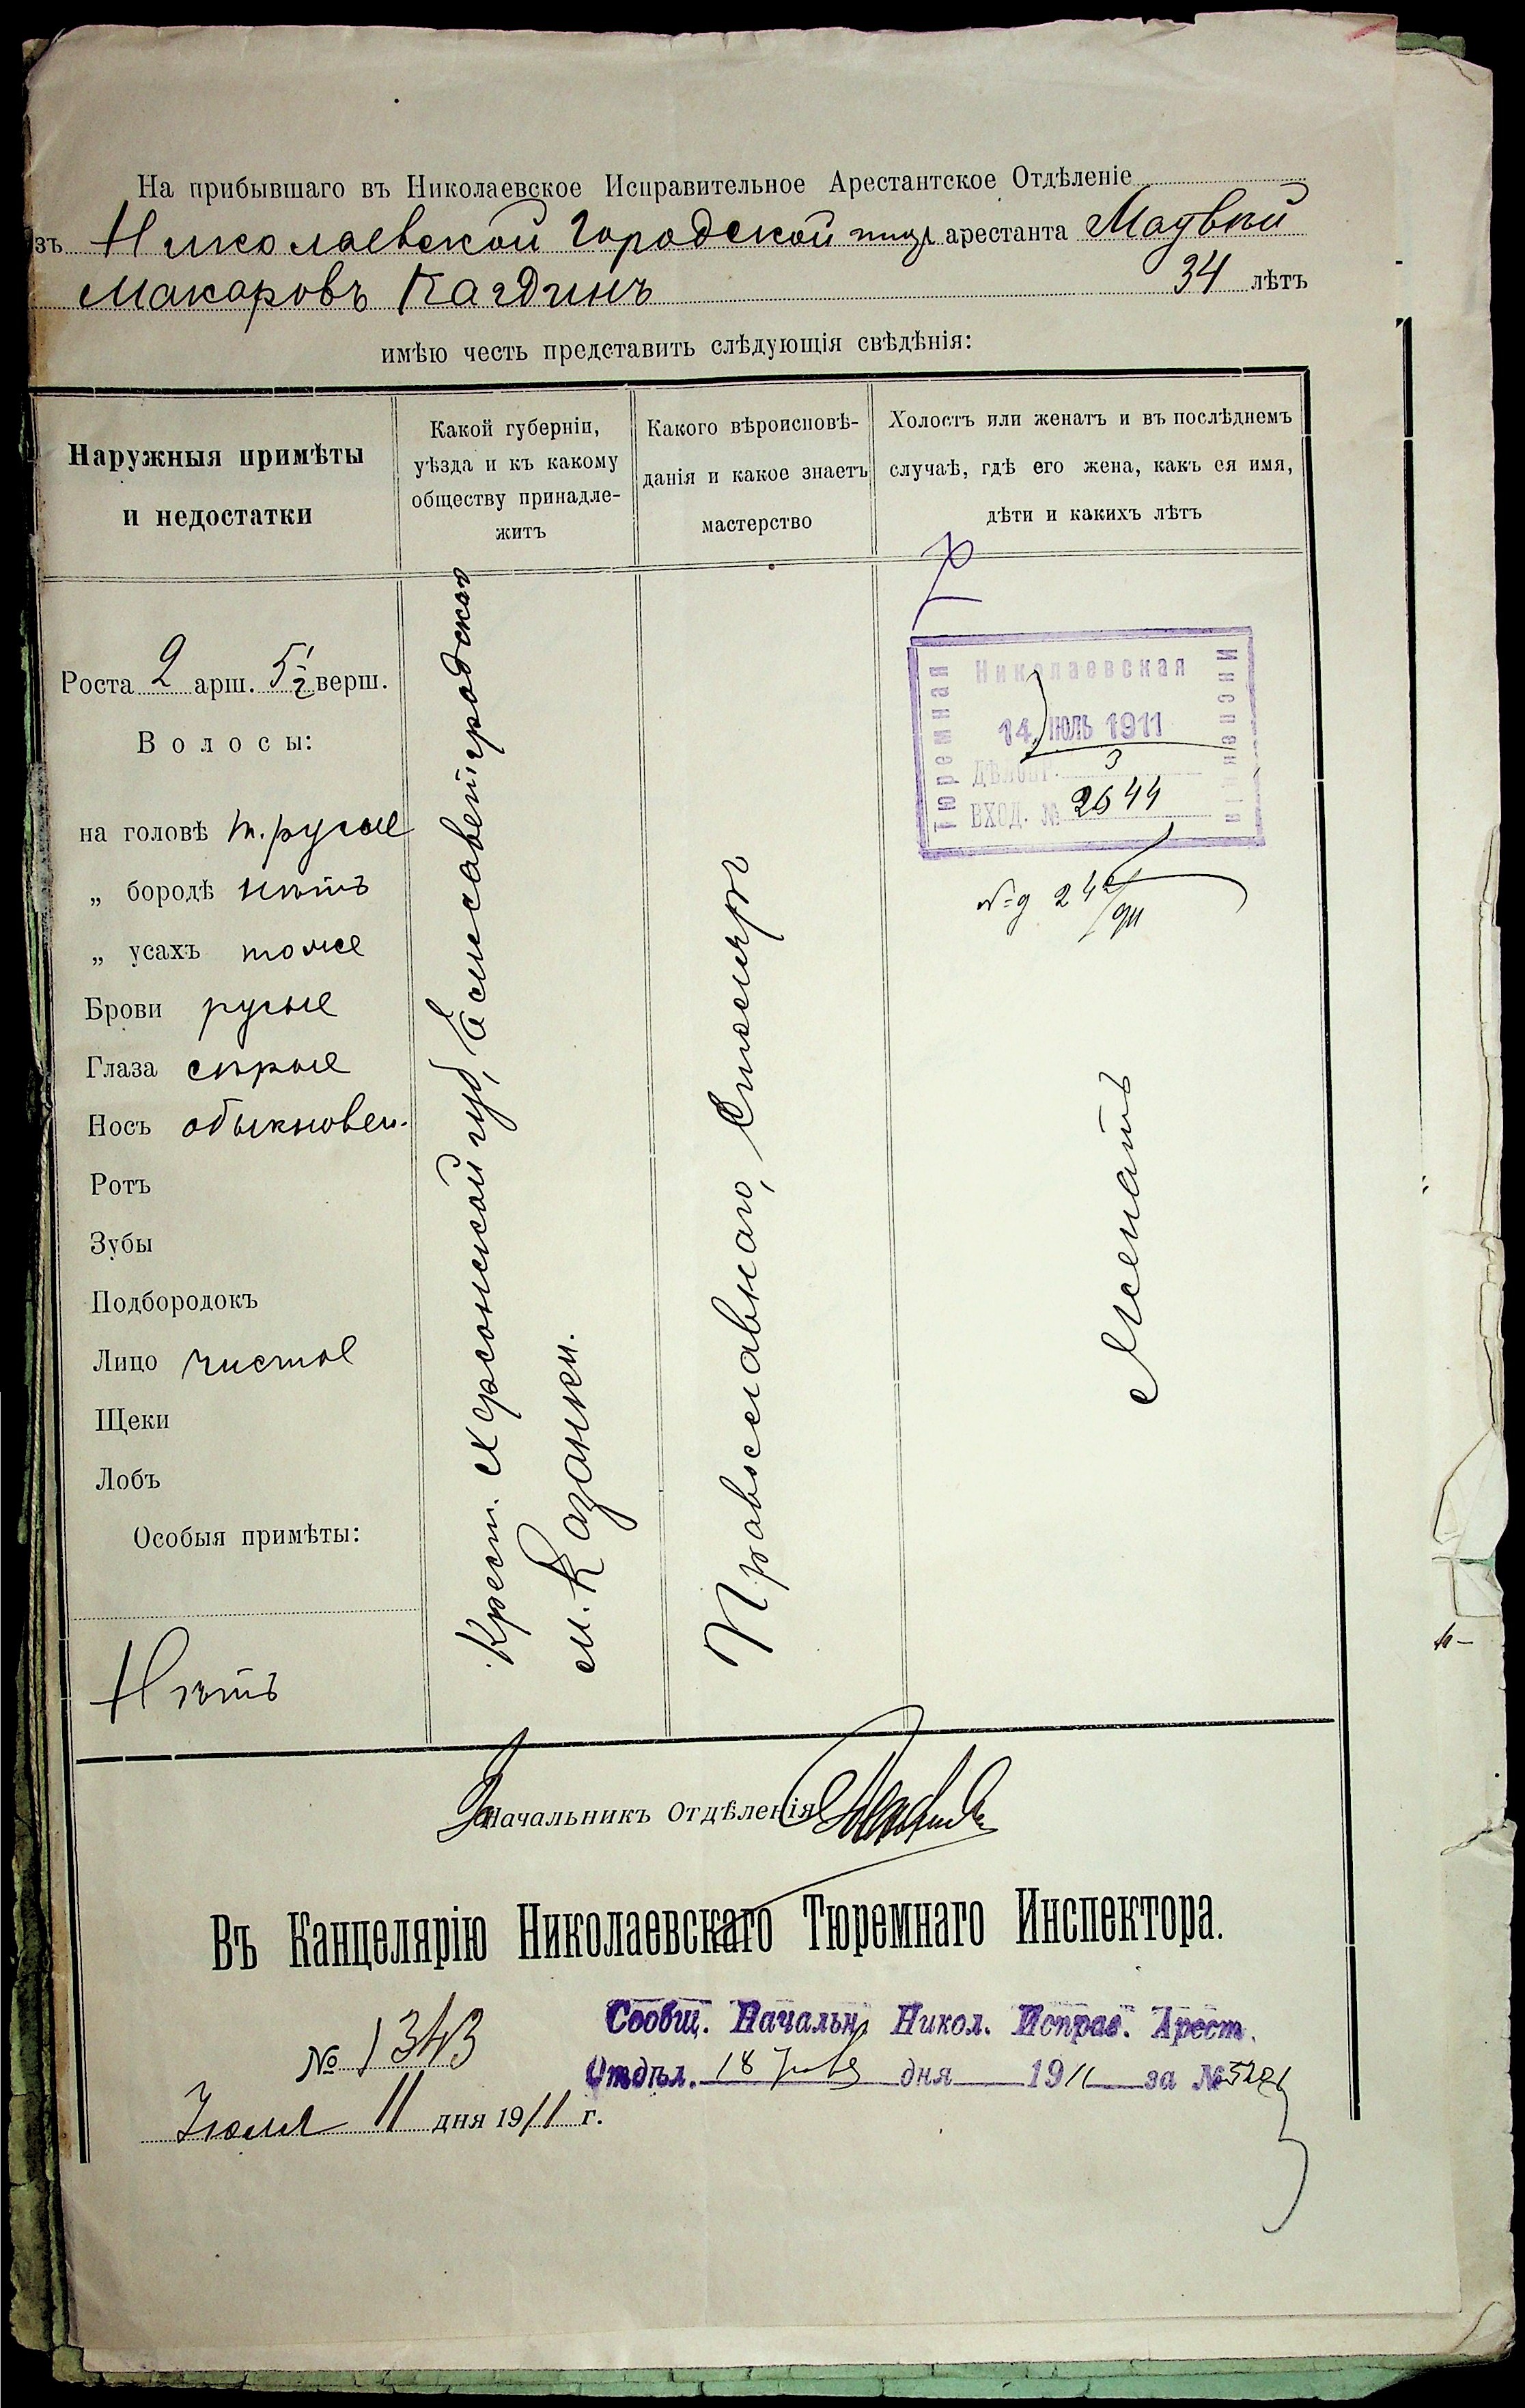 На прибывшаго въ Николаевское Исправительное Арестантское Отдѣленіе
зъ Николаевской Городской арестанта
Макаровъ 34 лѣтъ
имѣю честь представить слѣдующія свѣдѣнія:
Наружныя примѣты
и недостатки
Какой губерніи,
уѣзда и къ какому
обществу принадле-
житъ
Какого вѣроисповѣ-
данія и какое знаетъ
мастерство
Холостъ или женатъ и въ послѣднемъ
случаѣ, гдѣ его жена, какъ ея имя,
дѣти и какихъ лѣтъ
Роста 2 арш. 5 1/2 верш.
Волосы:
на головѣ т. русые
„ бородѣ нѣтъ
„ усахъ тоже
Брови русые
Глаза сѣрые
Носъ обыкновен.
Ротъ
Зубы
Подбородокъ
Лицо чистое
Щеки
Лобъ
Особыя примѣты:
Нѣтъ
Крест. Херсонской губ, Елисаветградскаго
м. Казанки.
Православнаго, Столяръ
Николаевская
Тюремная
Инспекція
14 ІЮЛЬ 1911
3
ВХОД. № 2644
Женатъ
За Начальникъ Отдѣленія
Въ Канцелярію Николаевскаго Тюремнаго Инспектора.
№ 1343
Іюля 11 дня 1911 г.
Сообщ. Начальн. Никол. Исправ. Арест.
Отдѣл. 18 дня 1911 за №